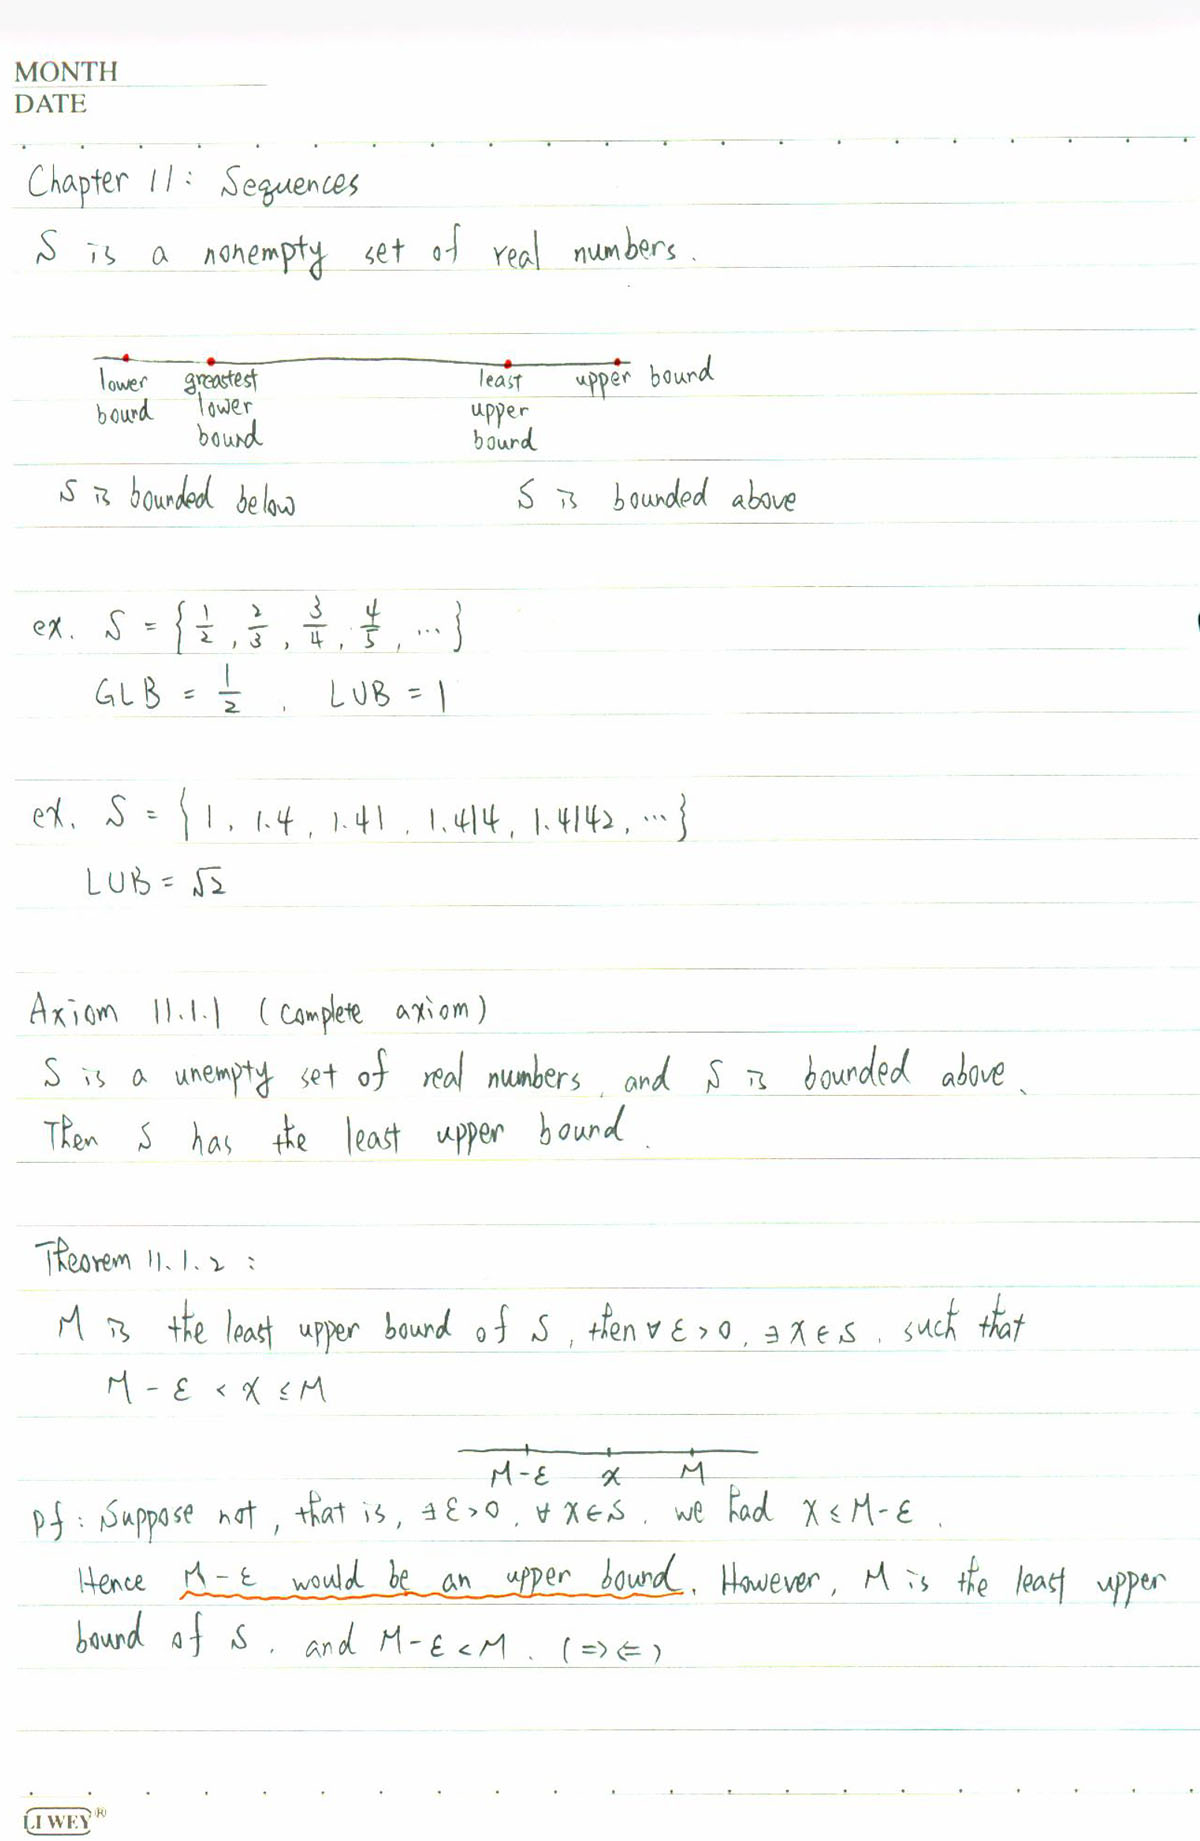 MONTH
DATE
Chapter 11: Sequences
S is a nonempty set of real numbers.
lower greastest least upper bound
bound lower upper
bound bound
S is bounded below S is bounded above
ex. S = {1/2, 2/3, 3/4, 4/5, ...}
GLB = 1/2, LUB = 1
ex. S = {1, 1.4, 1.41, 1.414, 1.4142, ...}
LUB = √2
Axiom 11.1.1 (complete axiom)
S is a unempty set of real numbers, and S is bounded above.
Then S has the least upper bound.
Theorem 11.1.2 :
M is the least upper bound of S, then ∀ε>0, ∃x∈S, such that
M-ε < x ≤ M
M-ε x M
pf : Suppose not, that is, ∃ε>0, ∀x∈S, we had x≤M-ε.
Hence M-ε would be an upper bound. However, M is the least upper
bound of S, and M-ε<M. (⇒⇐)
LI WEY®